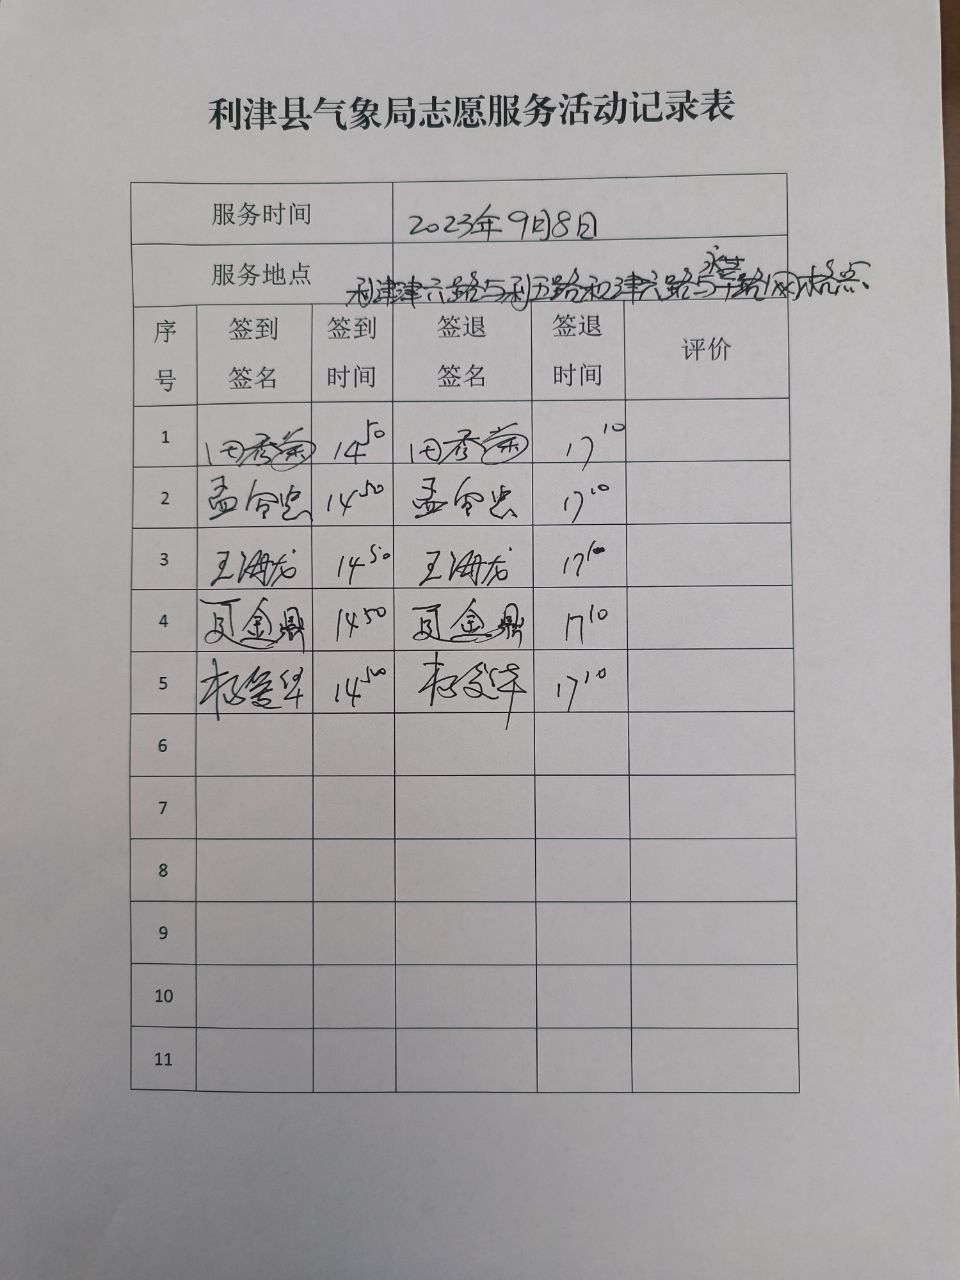 利津县气象局志愿服务活动记录表
服务时间 2023年9月8日
服务地点 利津津六路与利五路和津六路与永莘路网格点
序号 签到签名 签到时间 签退签名 签退时间 评价
1 田秀菊 14 50 田秀菊 17 10
2 孟令忠 14 50 孟令忠 17 10
3 王海龙 14 50 王海龙 17 10
4 金鼎 14 50 金鼎 17 10
5 14 50 17 10
6
7
8
9
10
11